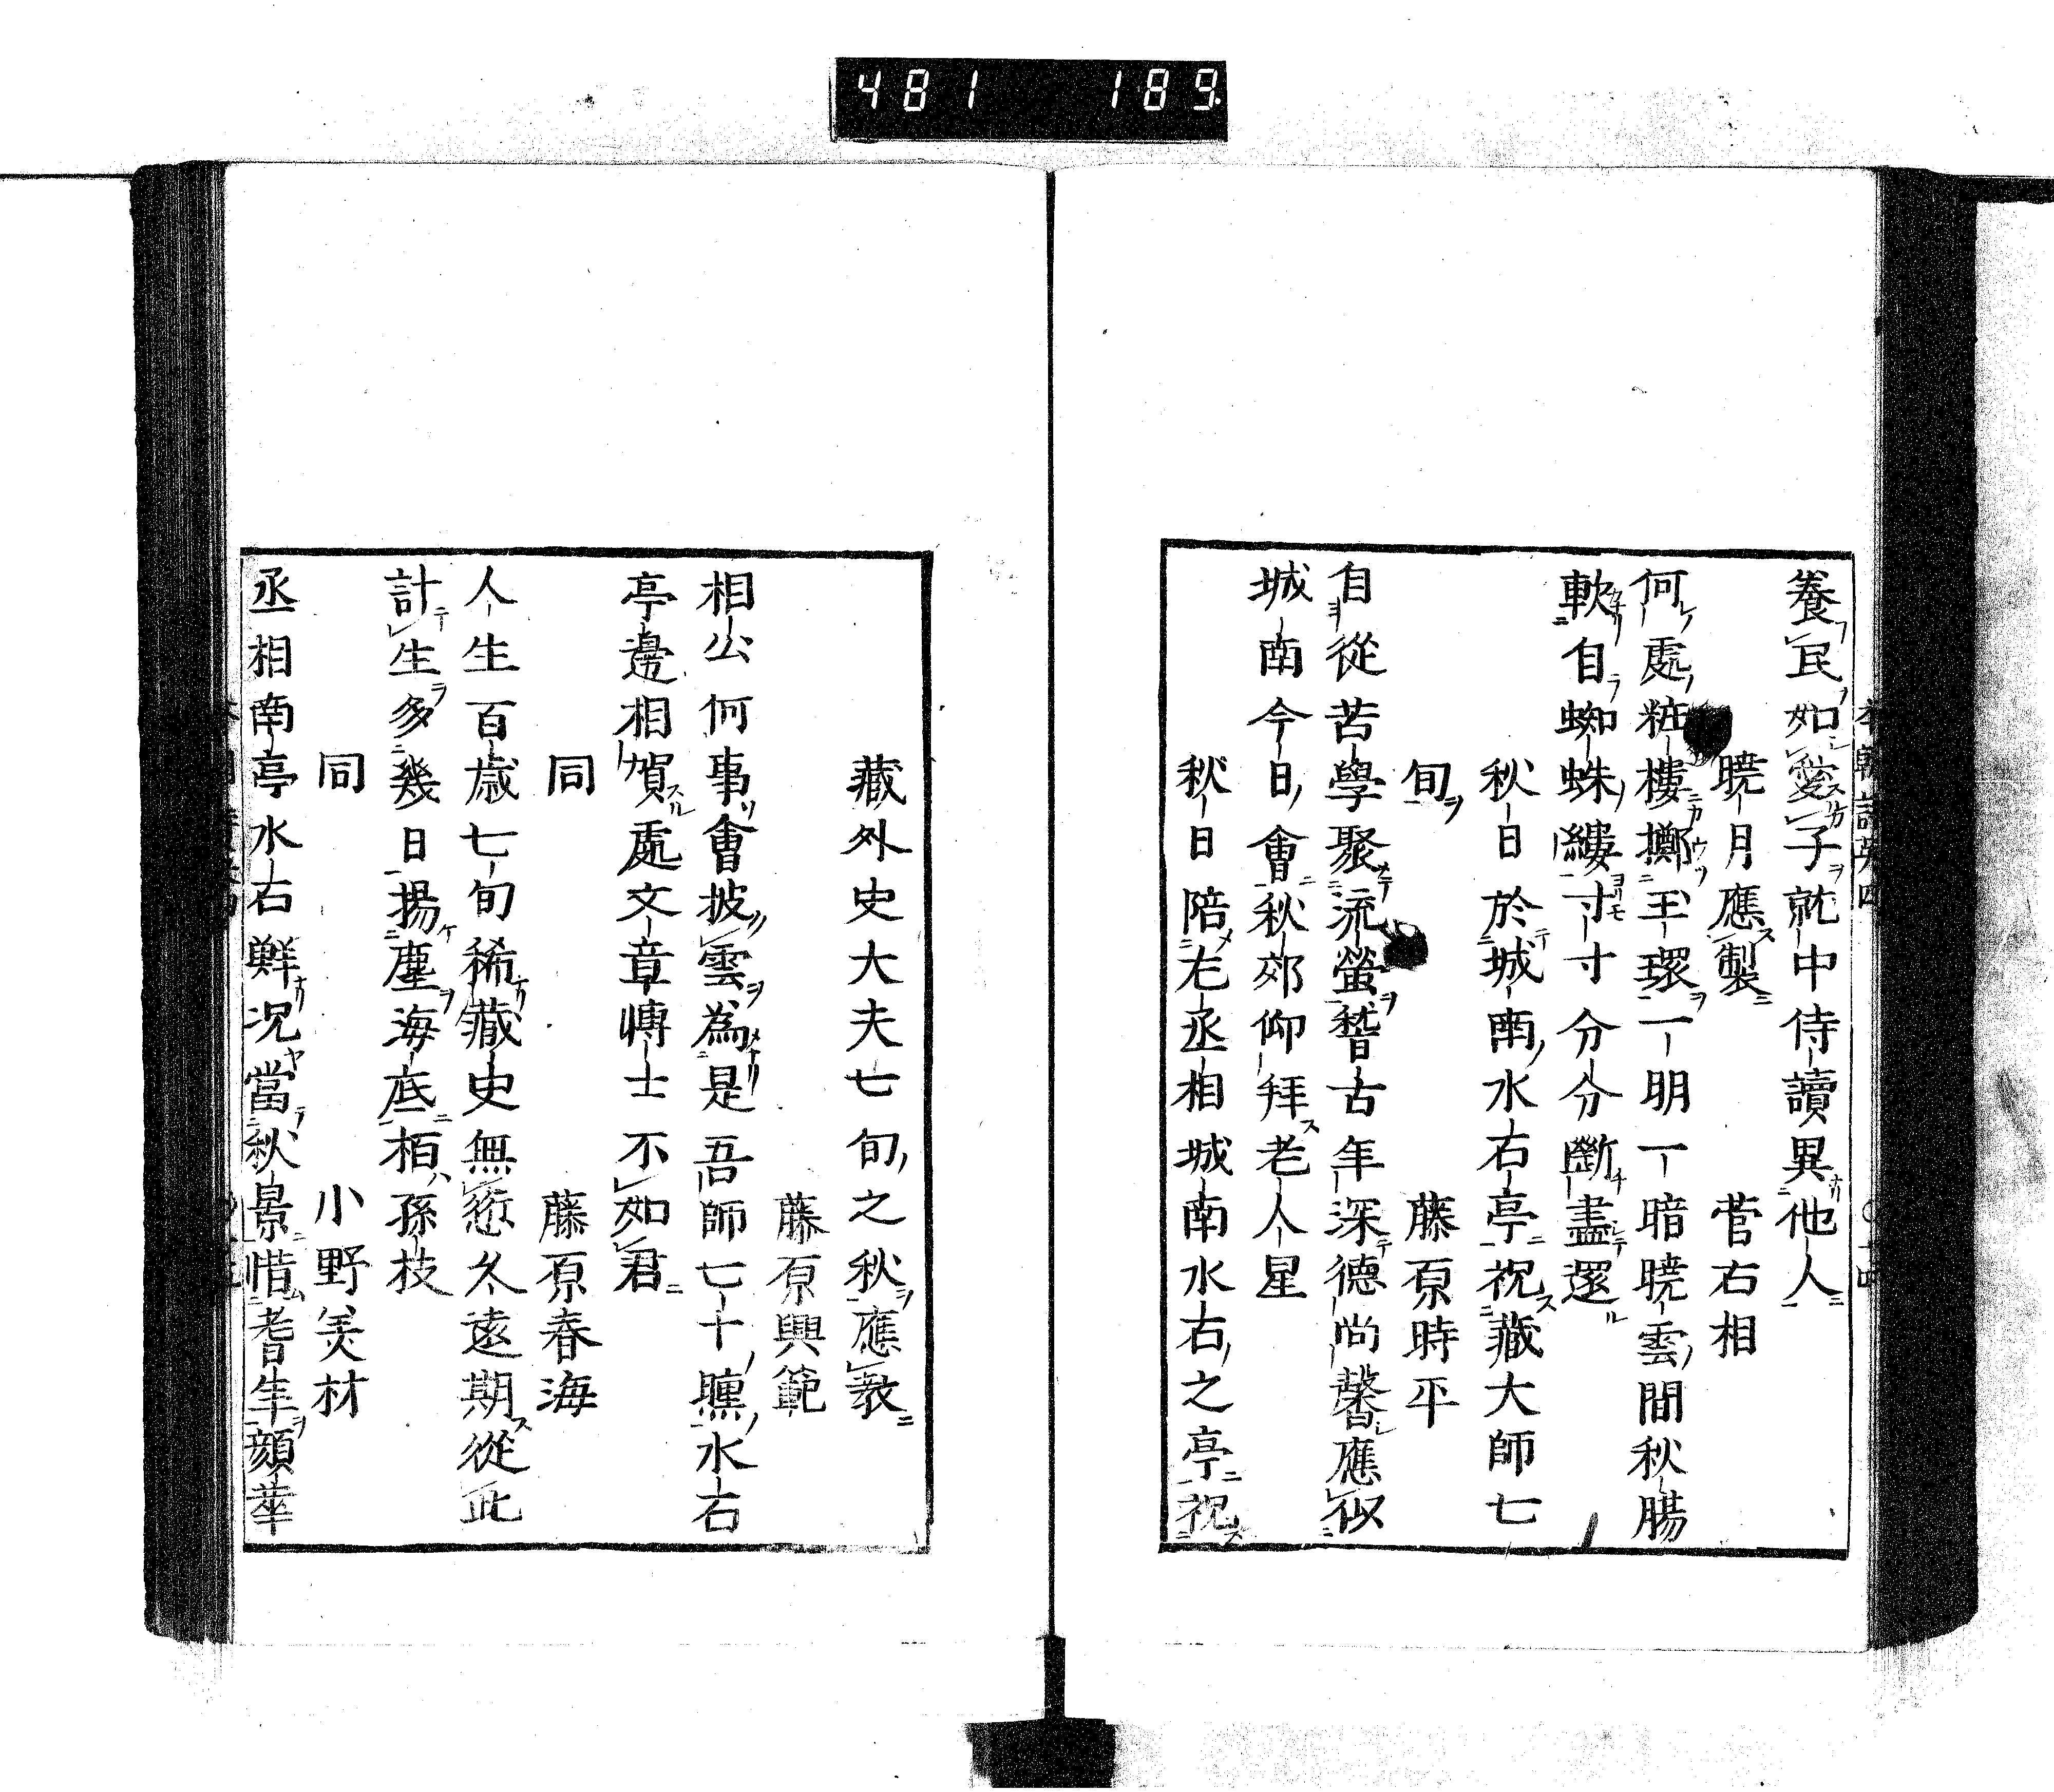 481 189
養民如愛子就中侍讀異他人
曉月應製 菅右相
何處粧樓擲玉環一明一暗曉雲間秋腸
軟自蜘蛛縷寸寸分分斷盡還
秋日於城南水右亭祝藏大師七
旬 藤原時平
自從苦學聚流螢稽古年深德尚馨應似
城南今日會秋郊仰拜老人星
秋日陪左丞相城南水右之亭祝
藏外史大夫七旬之秋應教
藤原興範
相公何事會披雲為是吾師七十曛水右
亭邊相賀處文章博士不如君
同 藤原春海
人生百歲七旬稀藏史無愆久遠期從此
計生多幾日揚塵海底栢孫枝
同 小野美材
丞相南亭水右鮮况當秋景惜耆年顏華